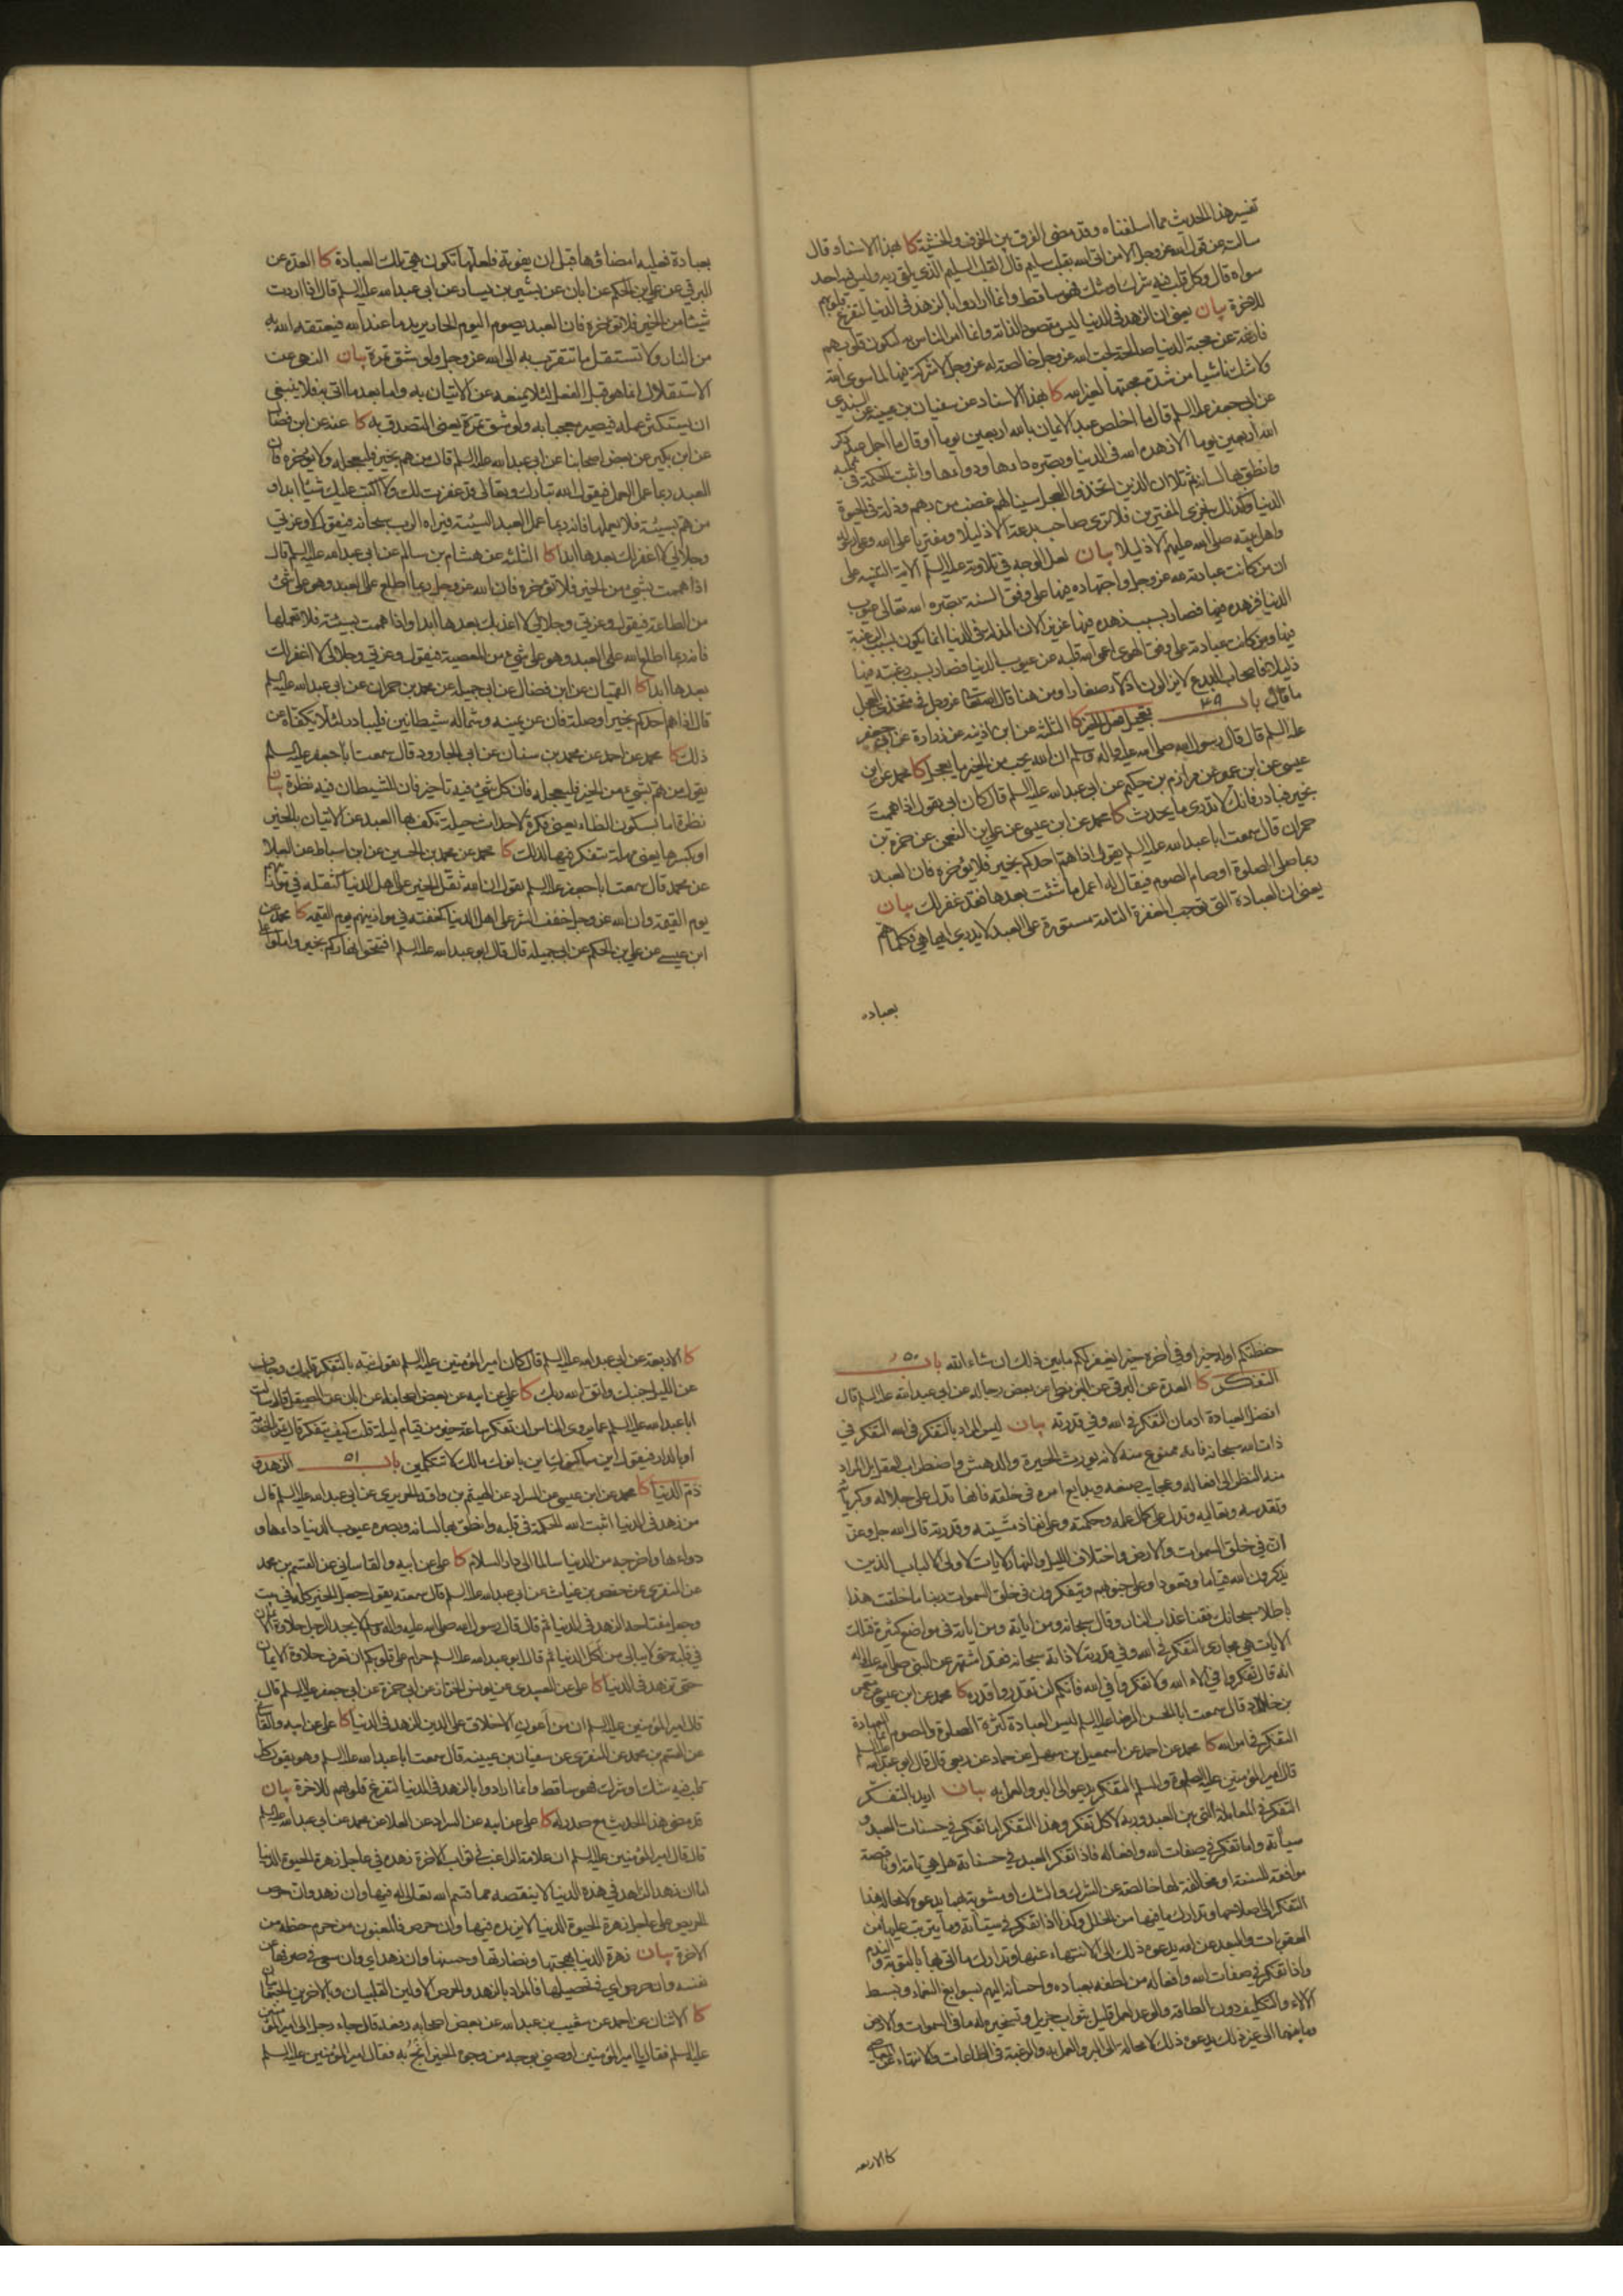 تفسير هذا الحديث مما اسلفناه وقد مضى الفرق بين الخوف والخشية كا بهذا الاسناد قال
سالته عن قول الله عزوجل الا من اتى الله بقلب سليم قال القلب السليم الذي يلقى ربه وليس فيه احد
سواه قال وكل قلب فيه شرك او شك فهو ساقط وانما ارادوا بالزهد في الدنيا لتفرغ قلوبهم
للاخرة بيان يعني ان الزهد في الدنيا ليس مقصودا لذاته وانما امر الناس به لتكون قلوبهم
فارغة عن محبة الدنيا صالحة لحب الله عزوجل خالصة له عزوجل لا شركة فيها لما سوى الله
ولا شك ناشيا من شدة محبتها لغير الله كا بهذا الاسناد عن سفيان بن عيينه عن السندي
عن ابي جعفر عليه السلم قال ما اخلص عبد الايمان بالله اربعين يوما او قال ما اجمل عبد ذكر
الله اربعين يوما الا زهده الله في الدنيا وبصره داءها ودواءها واثبت الحكمة في قلبه
وانطق بها لسانه ثم تلا ان الذين اتخذوا العجل سينالهم غضب من ربهم وذلة في الحيوة
الدنيا وكذلك نجزي المفترين فلا ترى صاحب بدعة الا ذليلا ومفتريا على الله وعلى رسوله
واهل بيته صلى الله عليهم الا ذليلا بيان لعل الوجه في تلاوته عليه السلم الاية التنبيه على
ان من كانت عبادته لله عزوجل واجتهاده فيها على وفق السنة بصره الله تعالى عيوب
الدنيا فزهده فيها فصار بسبب زهده فيها عزيزا لان المذلة في الدنيا انما يكون بسبب الرغبة
فيها ومن كانت عبادته على وفق الهوى اعمى الله قلبه عن عيوب الدنيا فصار بسبب رغبته فيها
ذليلا فاصحاب البدع لا يزالون اذلاء صغارا ومن هنا قال الله عزوجل في متخذي العجل
ما قال باب ٤٩ تعجيل فعل الخير كا الثلثة عن ابن اذينه عن زرارة عن ابي جعفر
عليه السلم قال قال رسول الله صلى الله عليه واله وسلم ان الله يحب من الخير ما يعجل كا محمد عن ابن
عيسى عن ابن ابي عمير عن مرازم بن حكيم عن ابي عبد الله عليه السلم قال كان ابي يقول اذا هممت
بخير فبادر فانك لا تدري ما يحدث كا محمد عن ابن عيسى عن علي بن النعمن عن حمزة بن
حمران قال سمعت ابا عبد الله عليه السلم يقول اذا هم احدكم بخير فلا يؤخره فان العبد
ربما صلى الصلوة او صام الصوم فيقال له اعمل ما شئت بعدها فقد غفر لك بيان
يعني ان العبادة التي توجب المغفرة التامة مستورة على العبد لا يدري ايها هي فكلما هم
بعبادة
بعبادة فعليه امضاؤها قبل ان يفوته فلعلها تكون هي تلك العبادة كا العدة عن
البرقي عن علي بن الحكم عن ابان عن بشير بن يسار عن ابي عبد الله عليه السلم قال اذا اردت
شيئا من الخير فلا تؤخره فان العبد يصوم اليوم الحار يريد ما عند الله فيعتقه الله به
من النار ولا تستقل ما تتقرب به الى الله عزوجل ولو شق تمرة بيان النهي عن
الاستقلال انما هو قبل الفعل لئلا يمنعه عن الاتيان به واما بعد ما اتى به فلا ينبغي
ان يستكثر عمله فيصير معجبا به ولو شق تمرة يعني التصدق به كا عنه عن ابن فضال
عن ابن بكير عن بعض اصحابنا عن ابي عبد الله عليه السلم قال من هم بخير فليعجله ولا يؤخره فان
العبد ربما عمل العمل فيقول الله تبارك وتعالى قد غفرت لك ولا اكتب عليك شيئا ابدا و
من هم بسيئة فلا يعملها فانه ربما عمل العبد السيئة فيراه الرب سبحانه فيقول لا وعزتي
وجلالي لا اغفر لك بعدها ابدا كا الثلثه عن هشام بن سالم عن ابي عبد الله عليه السلم قال
اذا هممت بشيء من الخير فلا تؤخره فان الله عزوجل ربما اطلع على العبد وهو على شئ
من الطاعة فيقول وعزتي وجلالي لا اعذبك بعدها ابدا واذا هممت بسيئة فلا تعملها
فانه ربما اطلع الله على العبد وهو على شئ من المعصية فيقول وعزتي وجلالي لا اغفر لك
بعدها ابدا كا القميان عن ابن فضال عن ابي جميله عن محمد بن حمران عن ابي عبد الله عليه السلم
قال اذا هم احدكم بخير او صلة فان عن يمينه وشماله شيطانين فليبادر لئلا يكفاه عن
ذلك كا محمد عن احمد عن محمد بن سنان عن ابي الجارود قال سمعت ابا جعفر عليه السلم
يقول من هم بشيء من الخير فليعجله فان كل شئ فيه تاخير فان للشيطان فيه نظرة بيان
نظرة اما بسكون الظاء يعني فكرة لاحداث حيلة تكف بها العبد عن الاتيان بالخير
او بكسرها يعني مهلة يتفكر فيها لذلك كا محمد عن محمد بن الحسين عن ابن اسباط عن العلا
عن محمد قال سمعت ابا جعفر عليه السلم يقول ان الله ثقل الخير على اهل الدنيا كثقله في موازينهم
يوم القيمة وان الله عزوجل خفف الشر على اهل الدنيا كخفته في موازينهم يوم القيمة كا محمد عن
ابن عيسى عن علي بن الحكم عن ابي جميله قال قال ابو عبد الله عليه السلم افتتحوا نهاركم بخير واملوا على
حفظتكم اوله خيرا وفي اخره خيرا يغفر لكم ما بين ذلك ان شاء الله باب ٥٠
التفكر كا العدة عن البرقي عن البزنطي عن بعض رجاله عن ابي عبد الله عليه السلم قال
افضل العبادة ادمان التفكر في الله وفي قدرته بيان ليس المراد بالتفكر في الله التفكر في
ذات الله سبحانه فانه ممنوع منه لانه يورث الحيرة والدهش واضطراب العقل بل المراد
منه النظر الى افعاله وعجايب صنعه وبدايع امره في خلقه فانها تدل على جلاله وكبريائه
وتقدسه وتعاليه وتدل على كمال علمه وحكمته وعلى نفاذ مشيته وقدرته قال الله جل وعز
ان في خلق السموات والارض واختلاف الليل والنهار لايات لاولي الالباب الذين
يذكرون الله قياما وقعودا وعلى جنوبهم ويتفكرون في خلق السموات ربنا ما خلقت هذا
باطلا سبحانك فقنا عذاب النار وقال سبحانه ومن اياته ومن اياته في مواضع كثيرة فتلك
الايات هي مجاري التفكر في الله وفي قدرته لا ذاته سبحانه فقد اشتهر عن النبي صلى الله عليه واله
انه قال تفكروا في الاء الله ولا تفكروا في الله فانكم لن تقدروا قدره كا محمد عن ابن عيسى عن معمر
بن خلاد قال سمعت ابا الحسن الرضا عليه السلم ليس العبادة كثرة الصلوة والصوم انما العبادة
التفكر في امر الله كا محمد عن احمد عن اسمعيل بن سهل عن حماد عن ربعي قال قال ابو عبد الله عليه السلم
قال امير المؤمنين عليه الصلوة والسلم التفكر يدعو الى البر والعمل به بيان اريد بالتفكر
التفكر في المعاملة التي بين العبد وربه لا كل تفكر وهذا التفكر اما تفكر في حسنات العبد و
سيئاته واما تفكر في صفات الله وافعاله فاذا تفكر العبد في حسناته هل هي تامة او ناقصة
موافقة للسنة او مخالفة لها خالصة عن الشرك والشك او مشوبة بهما يدعوه لا محالة هذا
التفكر الى اصلاحها وتدارك ما فيها من الخلل وكذا اذا تفكر في سيئاته وما يترتب عليها من
العقوبات والبعد عن الله يدعوه ذلك الى الانتهاء عنها وتدارك ما اتى بها بالتوبة والندم
واذا تفكر في صفات الله وافعاله من لطفه بعباده واحسانه اليهم بسوابغ النعماء وبسط
الالاء والتكليف دون الطاقة والوعد لعمل قليل بثواب جزيل وتسخيره له ما في السموات والارض
وما بينهما الى غير ذلك يدعوه ذلك لا محالة الى البر والعمل به والرغبة في الطاعات والانتهاء عن المعاصي
كا الاربعه
كا الاربعة عن ابي عبد الله عليه السلم قال كان امير المؤمنين عليه السلم يقول نبه بالتفكر قلبك وجاف
عن الليل جنبك واتق الله ربك كا علي عن ابيه عن بعض اصحابه عن ابان عن الصيقل قال سالت
ابا عبد الله عليه السلم عما يروي الناس ان تفكر ساعة خير من قيام ليلة قلت كيف يتفكر قال يمر بالخربة
او بالدار فيقول اين ساكنوك اين بانوك مالك لا تتكلمين باب ٥١ الزهد و
ذم الدنيا كا محمد عن ابن عيسى عن السراد عن الهيثم بن واقد الحريري عن ابي عبد الله عليه السلم قال
من زهد في الدنيا اثبت الله الحكمة في قلبه وانطق بها لسانه وبصره عيوب الدنيا داءها و
دواءها واخرجه من الدنيا سالما الى دار السلام كا علي عن ابيه والقاساني عن القسم بن محمد
عن المنقري عن حفص بن غياث عن ابي عبد الله عليه السلم قال سمعته يقول جعل الخير كله في بيت
وجعل مفتاحه الزهد في الدنيا ثم قال قال رسول الله صلى الله عليه واله وسلم لا يجد الرجل حلاوة الايمان
في قلبه حتى لا يبالي من اكل الدنيا ثم قال ابو عبد الله عليه السلم حرام على قلوبكم ان تعرف حلاوة الايمان
حتى تزهد في الدنيا كا علي عن العبيدي عن يونس عن الخزاز عن ابي حمزة عن ابي جعفر عليه السلم قال
قال امير المؤمنين عليه السلم ان من اعون الاخلاق على الدين الزهد في الدنيا كا علي عن ابيه والقاساني
عن القسم بن محمد عن المنقري عن سفيان بن عيينه قال سمعت ابا عبد الله عليه السلم وهو يقول كل
قلب فيه شك او شرك فهو ساقط وانما ارادوا بالزهد في الدنيا لتفرغ قلوبهم للاخرة بيان
قد مضى هذا الحديث مع صدر له كا علي عن ابيه عن السراد عن العلا عن محمد عن ابي عبد الله عليه السلم
قال قال امير المؤمنين عليه السلم ان علامة الراغب في ثواب الاخرة زهده في عاجل زهرة الحيوة الدنيا
اما ان زهد الزاهد في هذه الدنيا لا ينقصه مما قسم الله تعالى له فيها وان زهد وان حرص
الحريص على عاجل زهرة الحيوة الدنيا لا يزيده فيها وان حرص فالمغبون من حرم حظه من
الاخرة بيان زهرة الدنيا بهجتها ونضارتها وحسنها وان زهد اي وان سعى في صرفها عن
نفسه وان حرص اي في تحصيلها فالمراد بالزهد والحرص الاولين القلبيان وبالاخرين الجسمانيان
كا الاثنان عن احمد عن شعيب بن عبد الله عن بعض اصحابه رفعه قال جاء رجل الى امير المؤمنين
عليه السلم فقال يا امير المؤمنين اوصني بوجه من وجوه الخير انج به فقال امير المؤمنين عليه السلم